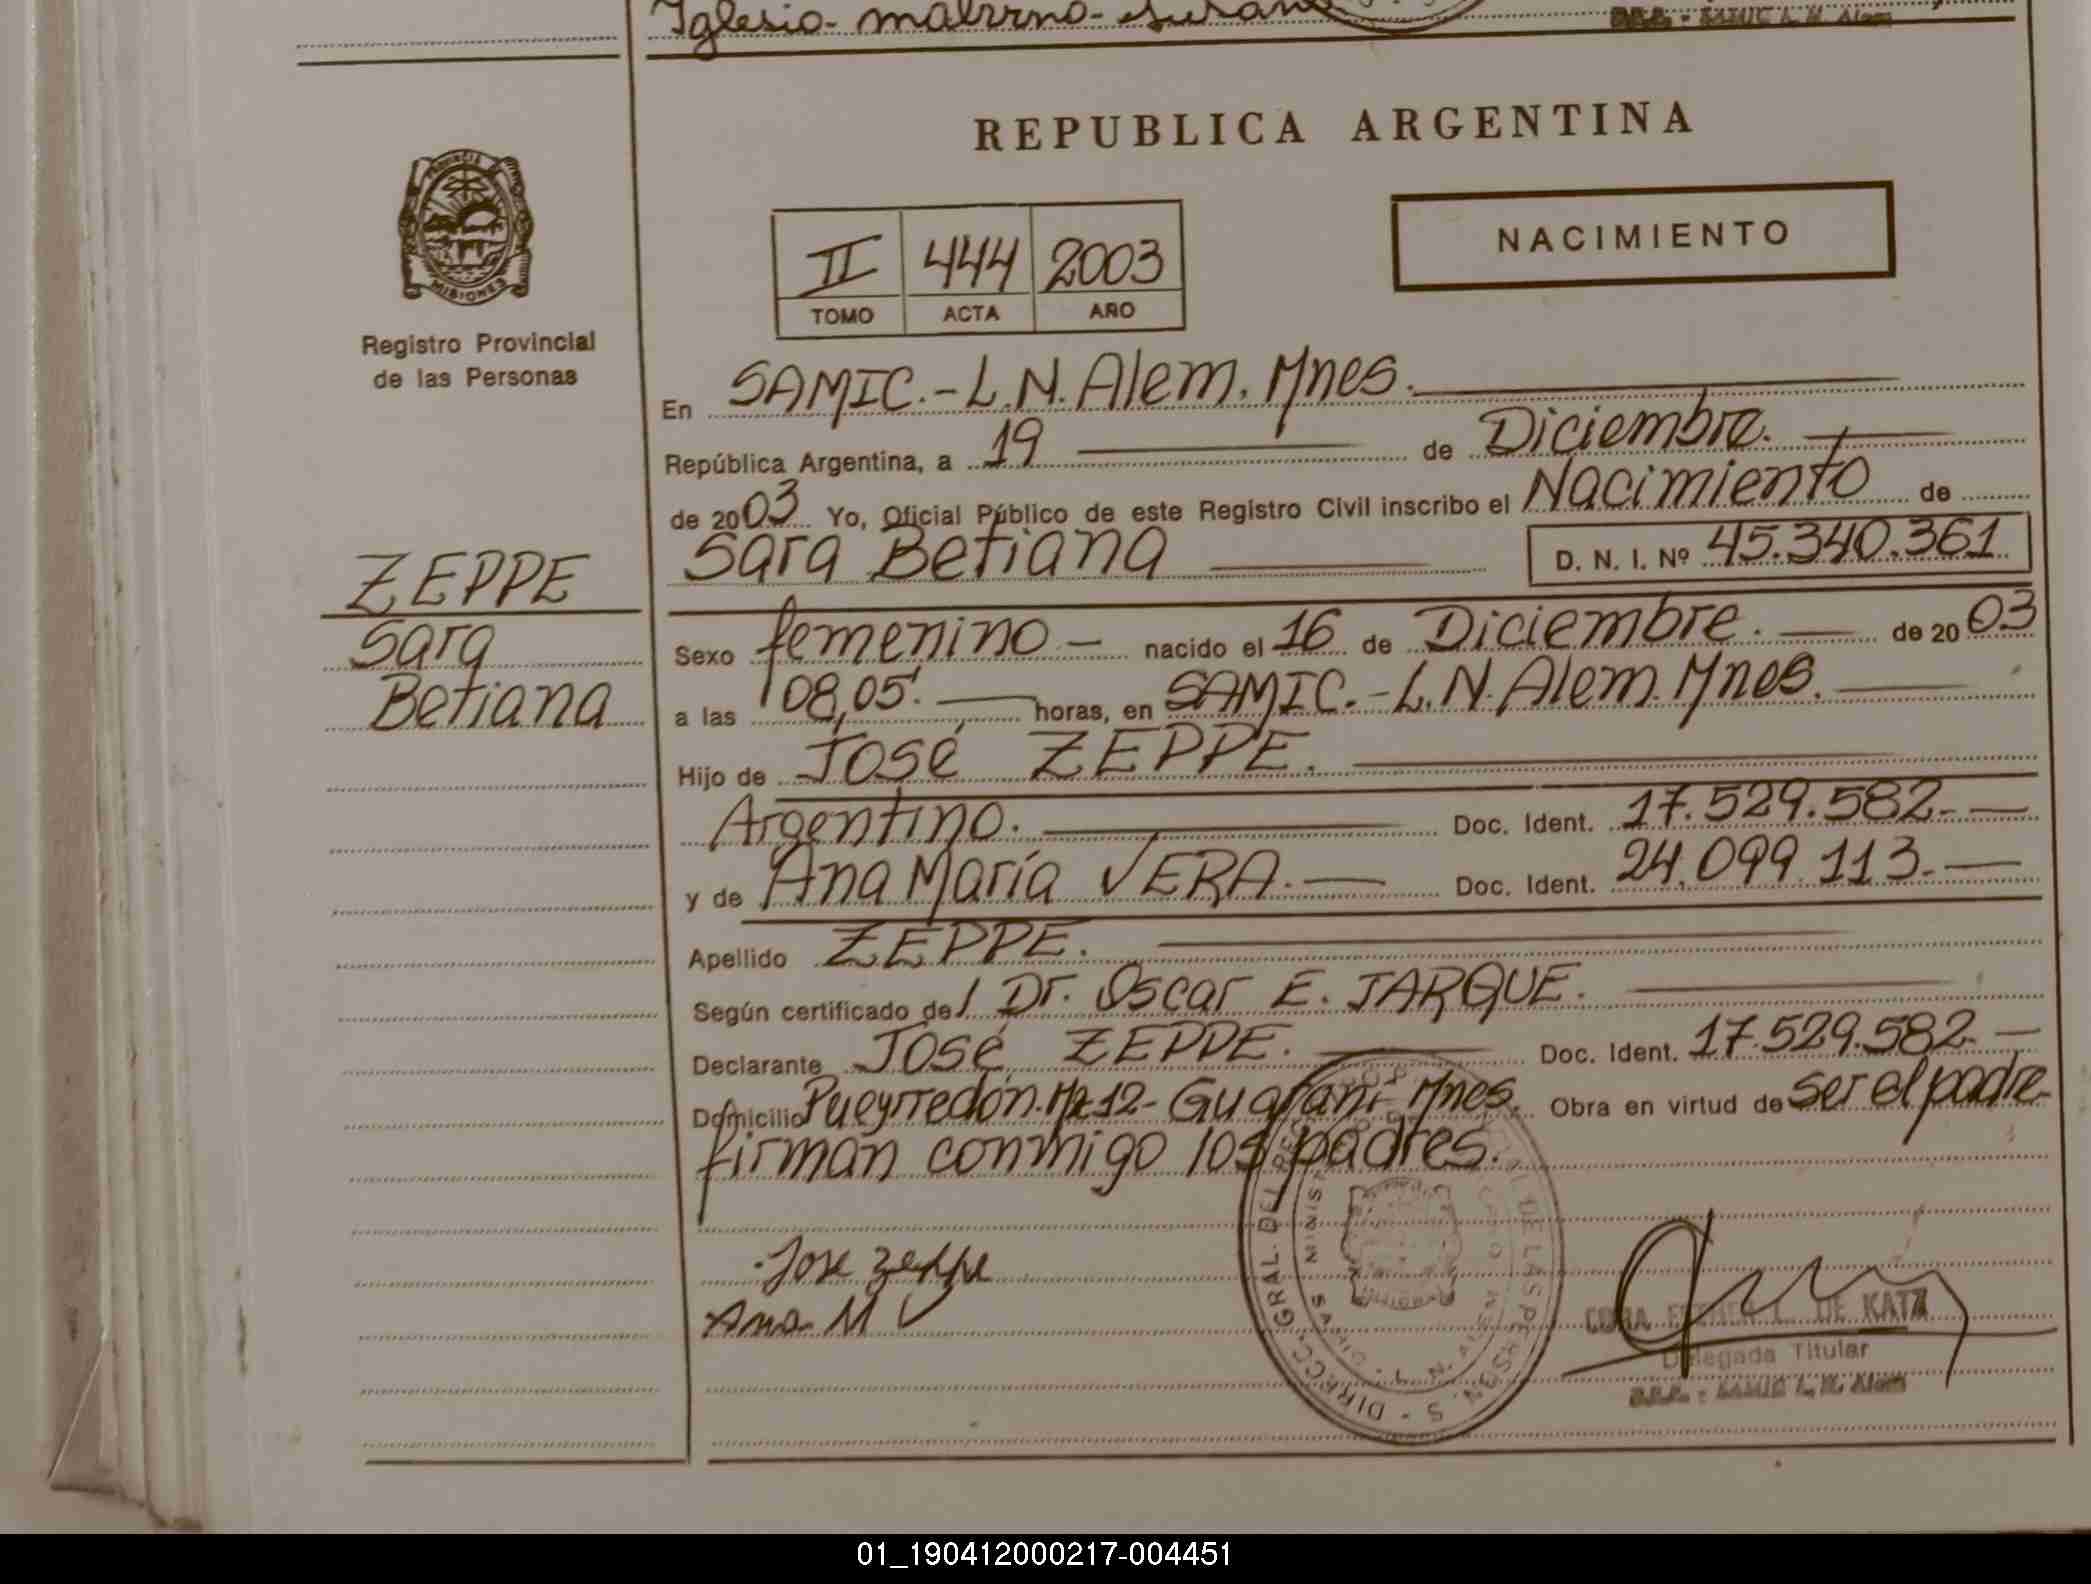 Iglesio- materno-
REPUBLICA ARGENTINA
PROVINCIA
MISIONES
Registro Provincial
de las Personas
II 444 2003
TOMO ACTA AÑO
NACIMIENTO
En SAMIC.-L.N.Alem. Mnes.
República Argentina, a 19 de Diciembre.
de 2003 Yo, Oficial Público de este Registro Civil inscribo el Nacimiento de
Sara Betiana D. N. I. Nº 45.340.361
ZEPPE
Sara
Betiana
Sexo femenino - nacido el 16 de Diciembre. de 2003
a las 08,05'. horas, en SAMIC.-L.N.Alem.Mnes.
Hijo de José ZEPPE.
Argentino. Doc. Ident. 17.529.582.-
y de Ana María VERA. Doc. Ident. 24.099.113.-
Apellido ZEPPE.
Según certificado del Dr. Oscar E. JARQUE.
Declarante José ZEPPE. Doc. Ident. 17.529.582.-
Domicilio Pueyrredón.Mz12- Guaraní- Mnes. Obra en virtud de ser el padre-
firman conmigo los padres.
Jose Zeppe
Ana M V
DE KATZ
Delegada Titular
SAMIC L. N. Alem
01_190412000217-004451